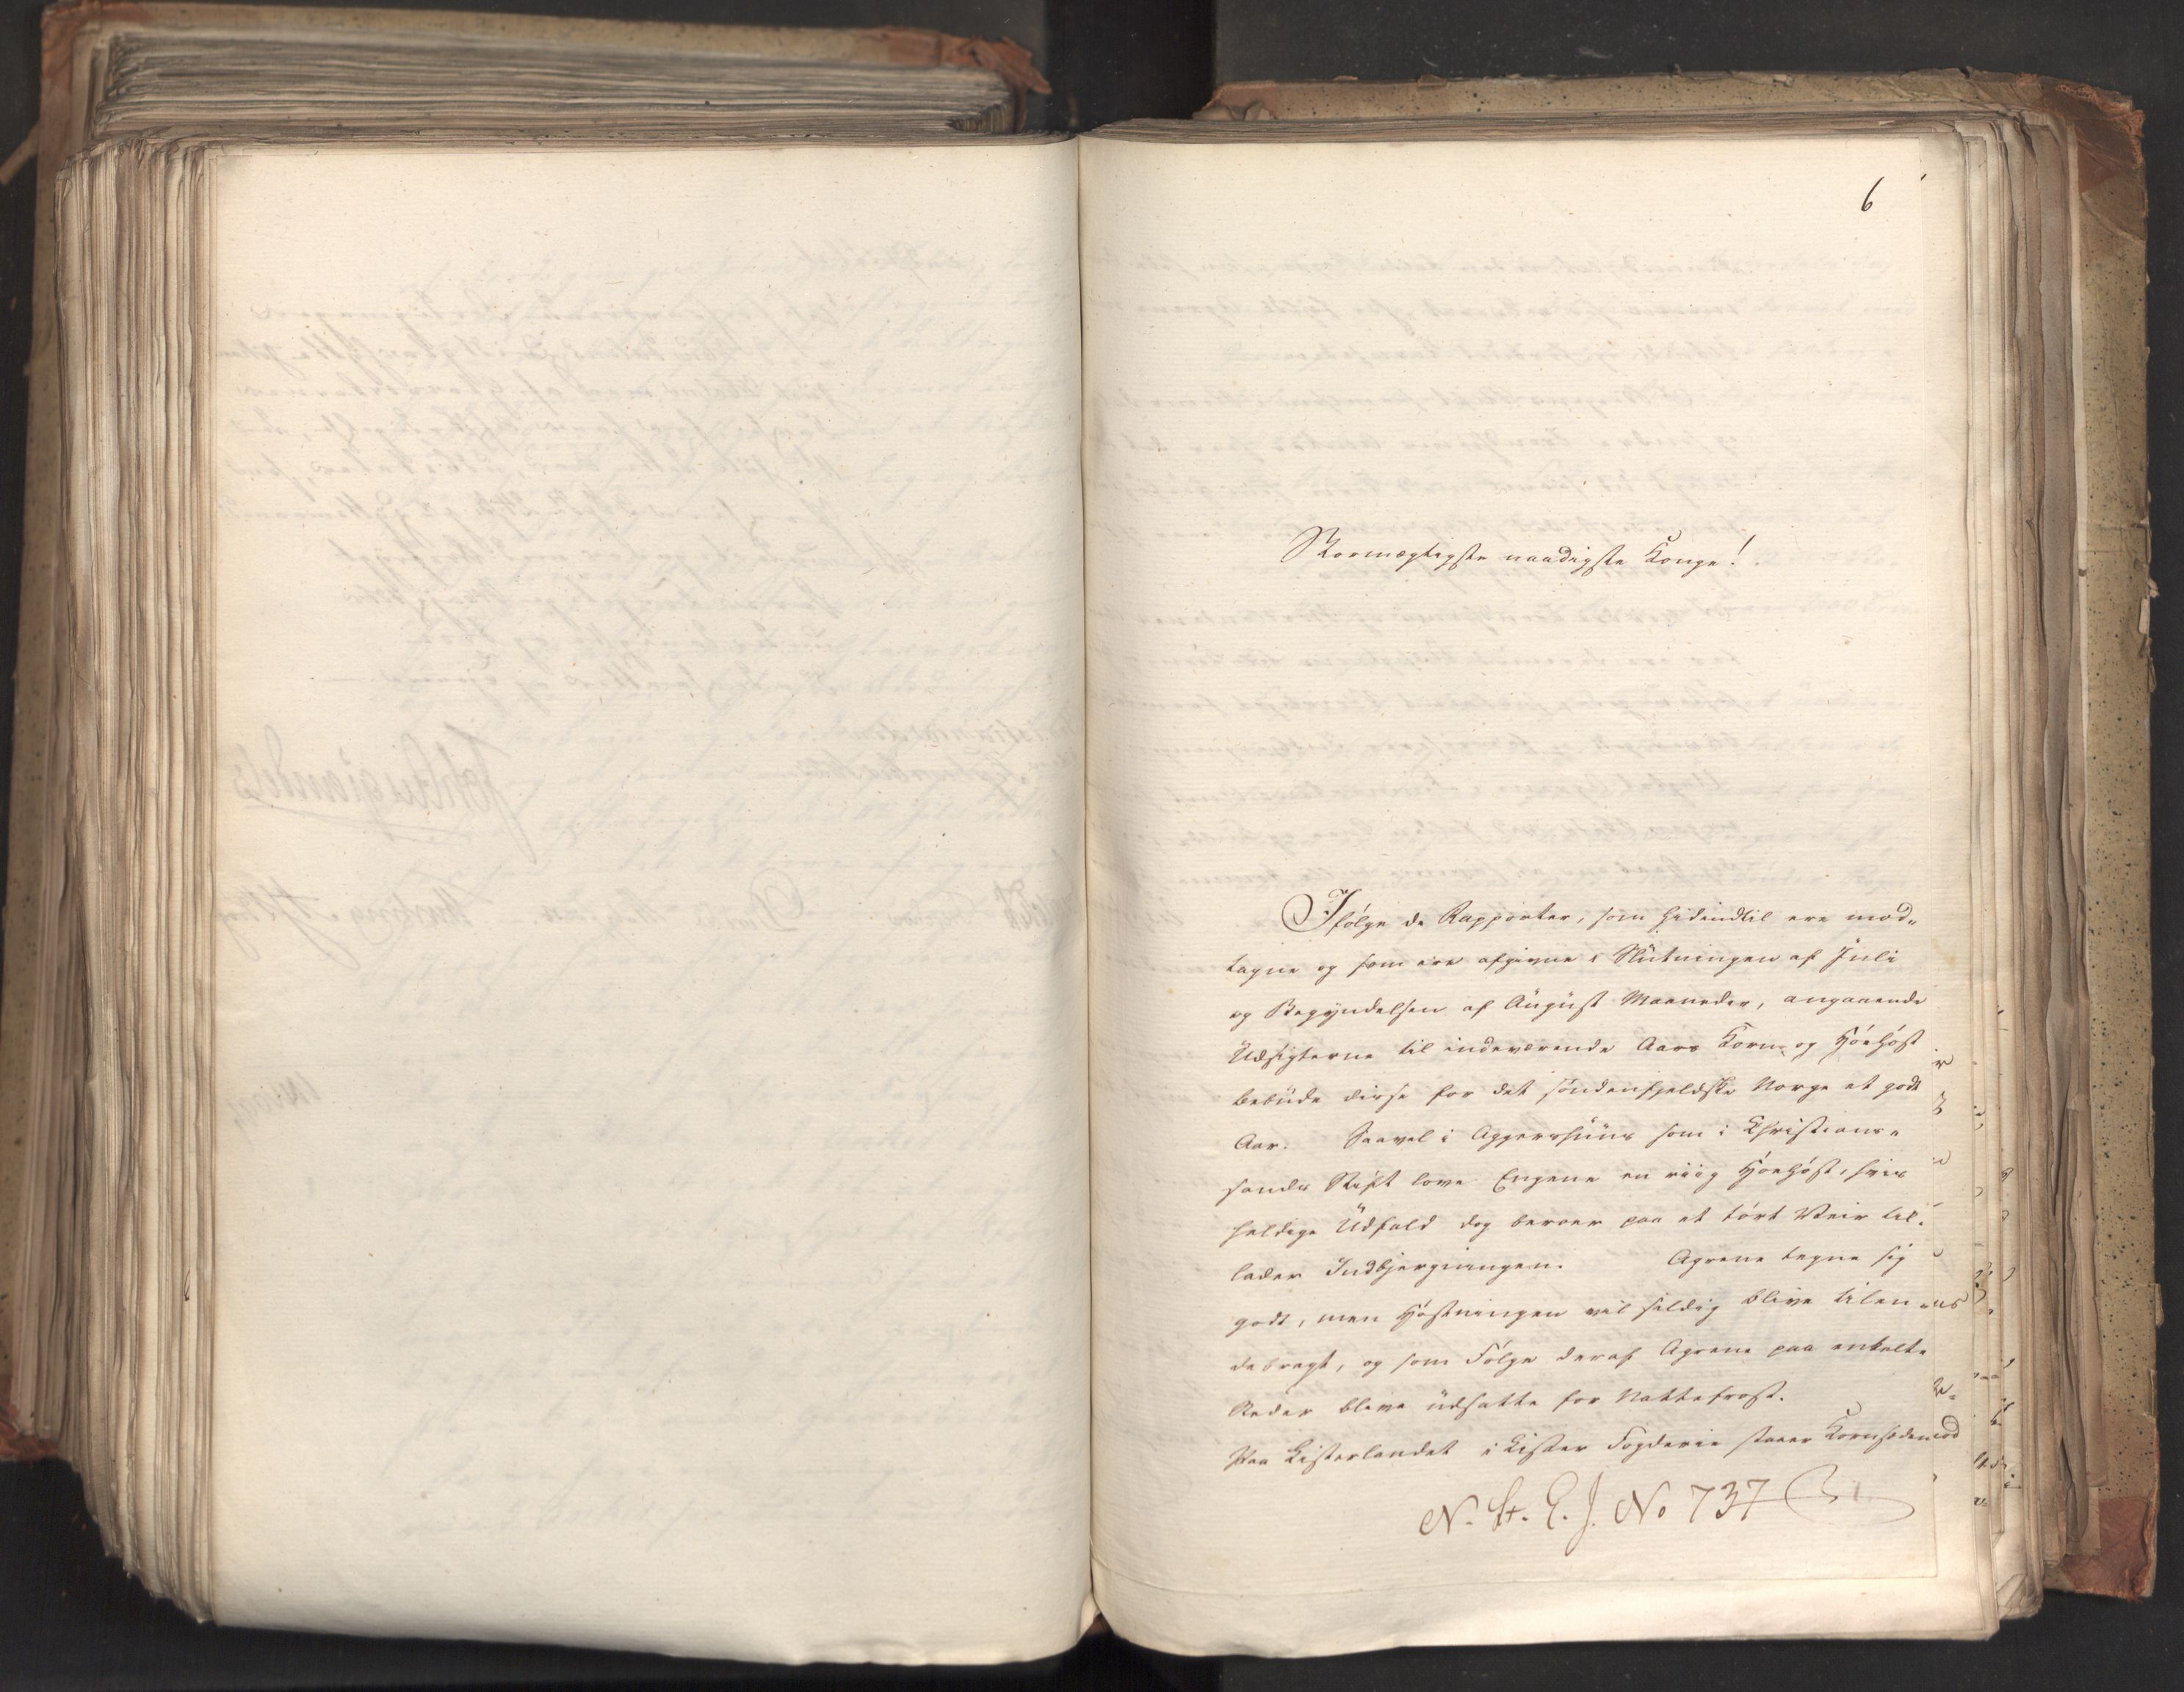 6
Stormægtigste naadigste Konge!
Ifølge de Rapporter, som hidindtil ere mod„
tagne og som ere afgivne i Slutningen af Juli
og Begyndelsen af August Maaneder, angaaende
Udsigterne til indeværende Aars Korn- og Høehøst
bebude disse for det søndenfjeldske Norge et godt
Aar. Saavel i Aggershuus som i Christians„
sands Stift love Engene en riig Høehøst, hvis
heldige Udfald dog beroer paa et tørt Veir til„
lader Indbjergningen. Agrene tegne sig
godt, men Høstningen vil sildig blive tilen„
debragt, og som Følge deraf Agrene paa enkelte
Steder blive udsatte for Nattefrost.
Paa Listerlandet i Lister Fogderie staaer Kornsæden
N. St. E. J. No 737